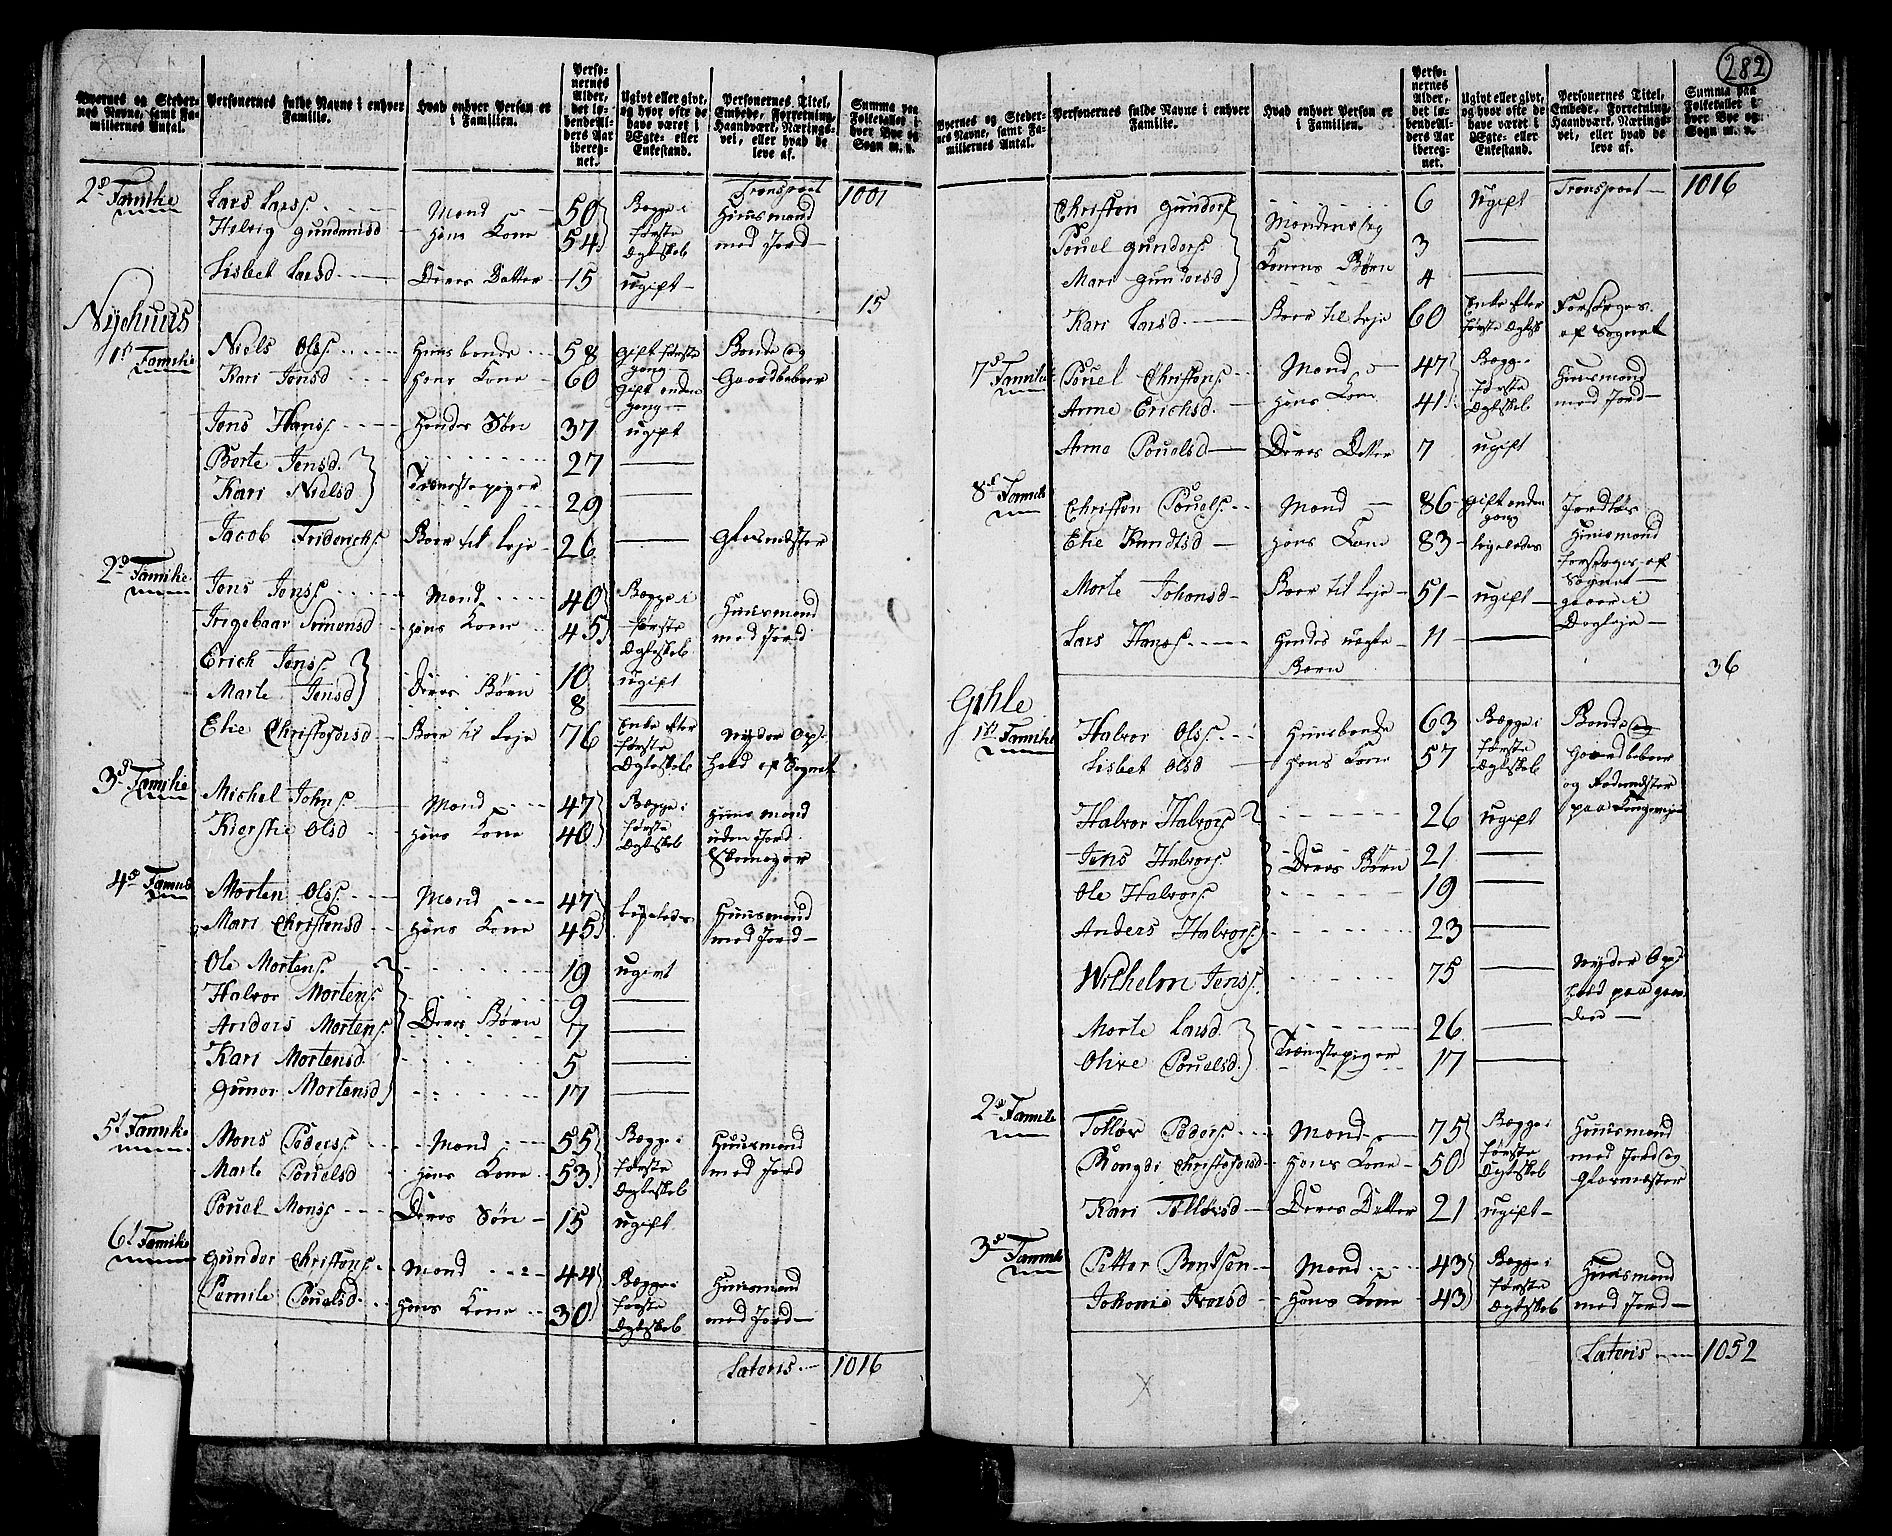 282
Byernes og Stedernes Navne, samt Familiernes Antal. | Personernes fulde Navne i enhver Familie. | Hvad enhver Person er i Familien. | Personernes Alder, det løbende Alders Aar iberegnet. | Ugivt eller givt, og hvor ofte de have været i Ægte- eller Enkestand. | Personernes Titel, Embede, Forretning, Haandværk, Næringsvei, eller hvad de leve af. | Summa paa Folketallet i hver Bye og Sogn m. v.
Transport 1001
2d Familie Lars Larss. Mand 50 Begge i Huusmand
Helvig Gundersd hans Kone 54 første med Jord
Ægteskab
Lisbet Larsd Deres Datter 15 ugift
15
Nyehuus
1st Familie Niels Olss. Huusbonde 58 gift første Bonde og
gang
Kari Jensd hans Kone 60 gift anden Gaardbeboer
gang
Jens Hanss. Hendes Søn 37 ugift
Berte Jensd. 27
Tienestepiger
Kari Nielsd 29
Jacob Friderichs. Boer til Leje 26 Glarmester
2d Familie Jens Jenss. Mand 40 Begge i Huusmand
Ingebaar Simensd hans Kone 45 første med Jord
Ægteskab
Erich Jenss. 10 ugift
Deres Børn
Marte Jensd 8
Elie Christophersd Boer til Leje 76 Enke efter Nyder Op-
første
Ægteskab hold af Sognet
3d Familie Michel Johns. Mand 47 Begge i Huusmand
Kierstie Olsd hans Kone 40 første uden Jord
Ægteskab Skomager
4d Familie Morten Olss. Mand 47 ligeledes Huusmand
Mari Christensd hans Kone 45 med Jord
Ole Mortens. 19 ugivt
Halvor Mortens. 9
Anders Mortens. Deres Børn 7
Kari Mortensd 5
Gunor Mortensd 17
5t Familie Mons Peders. Mand 55 Begge i Huusmand
Marte Pouelsd hans Kone 53 første med Jord
Ægteskab
Pouel Monss. Deres Søn 15 ugift
6t Familie Gunder Christens. Mand 44 Begge i Huusmand
Pernile Pouelsd hans Kone 30 første med Jord
Ægteskab
Lateris 1016
Byernes og Stedernes Navne, samt Familiernes Antal. | Personernes fulde Navne i enhver Familie. | Hvad enhver Person er i Familien. | Personernes Alder, det løbende Alders Aar iberegnet. | Ugivt eller givt, og hvor ofte de have været i Ægte- eller Enkestand. | Personernes Titel, Embede, Forretning, Haandværk, Næringsvei, eller hvad de leve af. | Summa paa Folketallet i hver Bye og Sogn m. v.
Christen Gunders. Mandens og 6 Ugift Transport 1016
Pouel Gunders. 3
Konens Børn
Mari Gundersd 4
Kari Larsd Boer til Leje 60 Enke efter Forsørges
første Ægtsk af Sognet
7d Familie Pouel Christens. Mand 47 Begge Huusmand
Anne Erichsd. hans Kone 41 første med Jord
Ægteskab
Anne Pouelsd Deres Datter 7 ugift
8d Familie Christen Pouels. Mand 86 gift anden Jordløs
gang Huusmand
Elie Knudtsd hans Kone 83 ligeledes forsørges af
Sognet
Marte Johansd Boer til Leje 51 ugift gaaer i
Dagleje
Lars Hanss. Hendes uægte 11
Barn
36
1st Familie Halvor Olss. Huusbonde 63 Begge i Bonde og
Lisbet Olsd hans Kone 57 første Gaardbeboer
Ægteskab og Rodemester
Halvor Halvors. 26 ugift paa Kongeveje
Jens Halvors. Deres Børn 21
Ole Halvors. 19
Anders Halvors. 23
Wilhelm Jenss. 75 Nyder Op-
hold paa gaar-
den
Marte Larsd. 26
Tienestepiger
Olive Pouelsd. 17
2d Familie Tolløv Peders. Mand 75 Begge i Huusmand
Rongdi Christophersd hans Kone 50 første med Jord og
Ægteskab Glarmester
Kari Tolløvsd Deres Datter 21 ugift
3d Familie Petter Bentsen Mand 43 Begge i Huusmand
Johanne Iversd hans Kone 43 første med Jord
Ægteskab
Lateris 1052